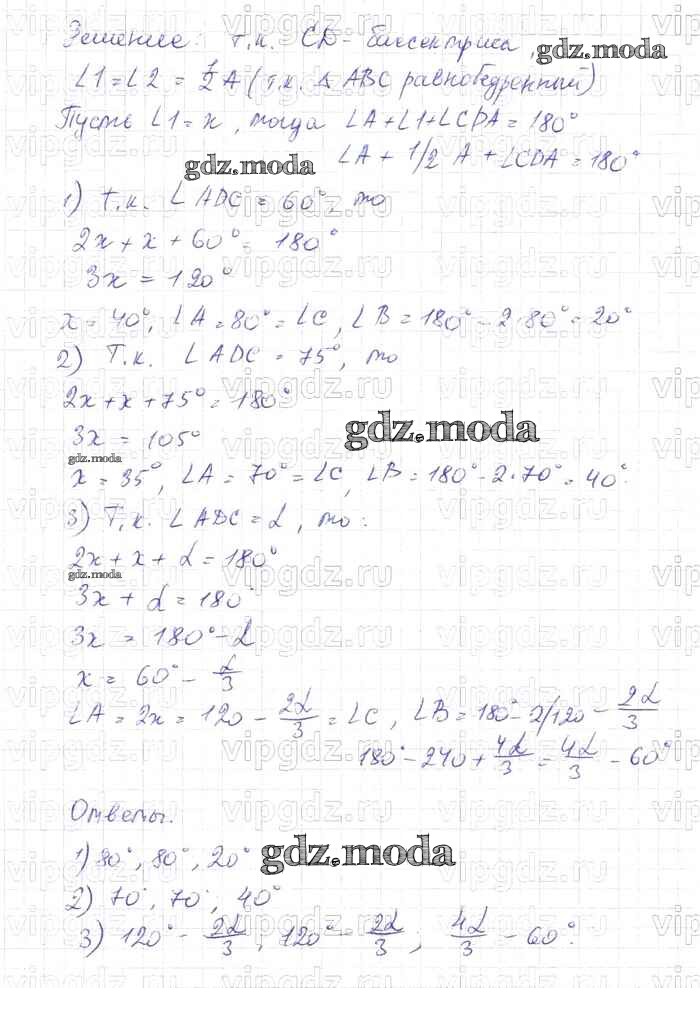 Решение: т.к. СD - биссектриса,
gdz.moda
∠1=∠2 = 1/2 A (т.к. Δ ABC равнобедренный)
Пусть ∠1=x, тогда ∠A+∠1+∠CDA=180°
∠A + 1/2 A + ∠CDA = 180°
gdz.moda
1) т.к. ∠ADC = 60°, то
2x+x+60°=180°
3x = 120°
x = 40°, ∠A=80°=∠C, ∠B=180°-2·80°=20°
2) Т.к. ∠ADC = 75°, то
2x+x+75°=180°
gdz.moda
3x = 105°
gdz.moda
x = 35°, ∠A = 70° = ∠C, ∠B = 180°-2·70° = 40°.
3) Т.к. ∠ADC=α, то:
2x+x+α=180°
gdz.moda
3x+α=180°
3x = 180°-α
x = 60° - α/3
∠A = 2x = 120 - 2α/3 = ∠C, ∠B = 180°-2/120 - 2α/3
180°-240+ 4α/3 = 4α/3 - 60°
Ответы:
1) 80°, 80°, 20°
gdz.moda
2) 70°, 70°, 40°
3) 120° - 2α/3, 120° - 2α/3; 4α/3 - 60°.
vipgdz.ru